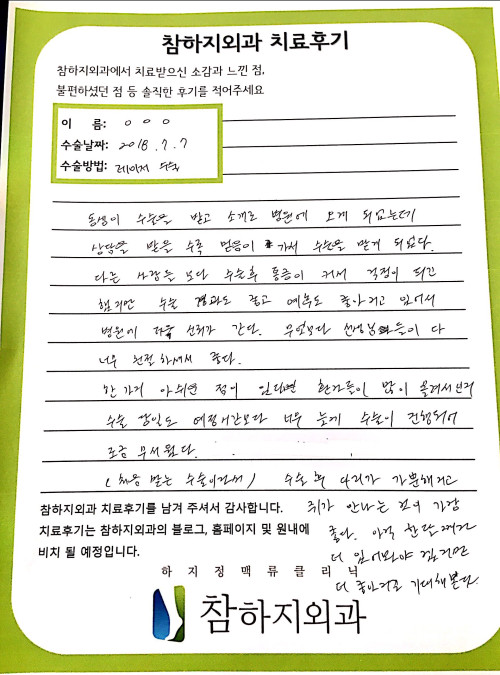 참하지외과 치료후기
참하지외과에서 치료받으신 소감과 느낀 점,
불편하셨던 점 등 솔직한 후기를 적어주세요
이 름: ○ ○ ○
수술날짜: 2018. 7. 7
수술방법: 레이저 수술
동생이 수술을 받고 소개로 병원에 오게 되었는데
상담을 받을 수록 믿음이 가서 수술을 받게 되었다.
다른 사람들 보다 수술후 통증이 커서 걱정이 되고
했지만 수술 경과도 좋고 예후도 좋아지고 있어서
병원에 더욱 신뢰가 간다. 무엇보다 선생님들이 다
너무 친절하셔서 좋다.
한가지 아쉬운 점이 있다면 환자들이 많이 몰려서인지
수술 당일도 예정시간보다 너무 늦게 수술이 진행되어
조금 무서웠다.
(처음 받는 수술이라서) 수술 후 다리가 가뿐해지고
쥐가 안나는 것이 가장
좋다. 아직 한달 째라
더 있어봐야 겠지만
더 좋아지길 기대해본다.
참하지외과 치료후기를 남겨 주셔서 감사합니다.
치료후기는 참하지외과의 블로그, 홈페이지 및 원내에
비치 될 예정입니다.
하지정맥류클리닉
참하지외과